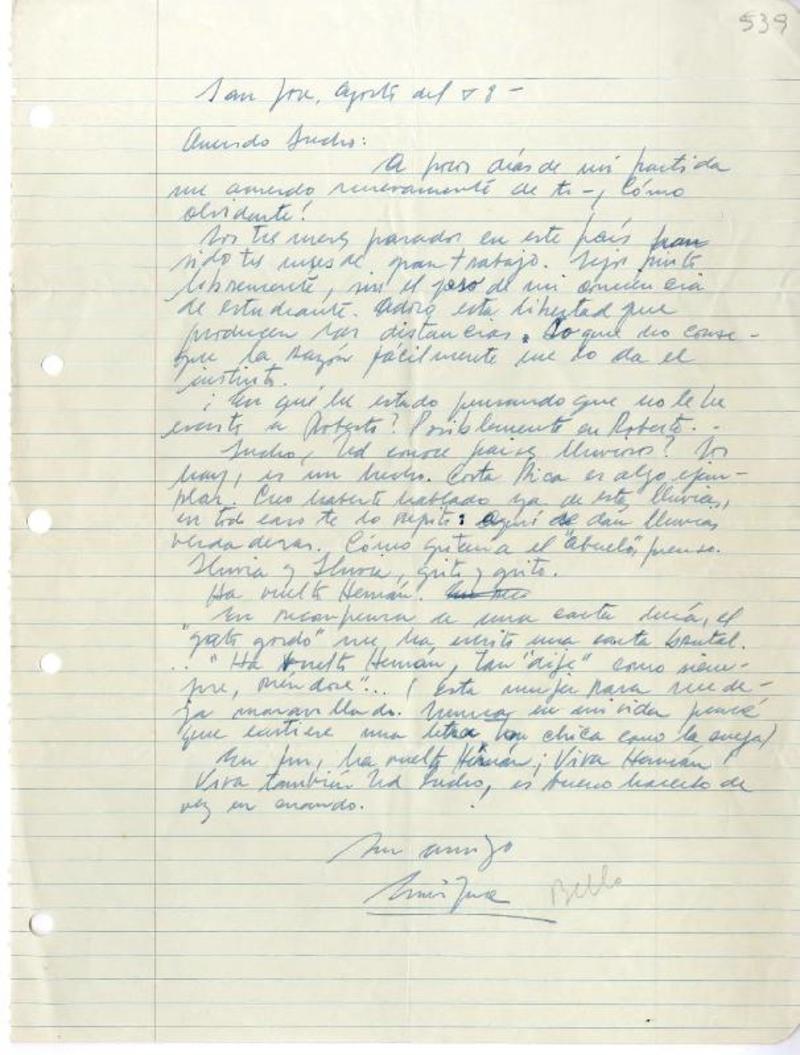 539
San José, agosto del 58 -
Querido Lucho:
A pocos días de mi partida
me acuerdo nuevamente de ti - ¡Cómo
olvidarte!
Los tres meses pasados en este país han
sido tres meses de gran trabajo. pinté
libremente, sin el peso de mi conciencia
de estudiante. Adoro esta libertad que
producen las distancias. Lo que no conse-
gue la razón fácilmente me lo da el
instinto.
¿En qué he estado pensando que no le he
escrito a Roberto? Posiblemente en Roberto. -
Lucho, Ud conoce países lluviosos? Los
hay, es un hecho. Costa Rica es algo ejem-
plar. Creo haberte hablado ya de esta lluvias,
en todo caso te lo repito: aquí se dan lluvias
verdaderas. Cómo gritaría el "abuelo", pienso.
Lluvia y lluvia, grito y grito.
Ha vuelto Hernán.
En recompensa de una carta decía, el
"gato gordo" me ha escrito una carta brutal.
.. "Ha vuelto Hernán, tan "dije" como siem-
pre, riéndose"... (esta mujer para me de-
ja maravillado. Nunca en mi vida pensé
que existiese una letra tan chica como la suya)
En fin, ha vuelto Hernán ¡Viva Hernán!
Viva también Ud Lucho, es bueno hacerlo de
vez en cuando.
Su amigo
Bello